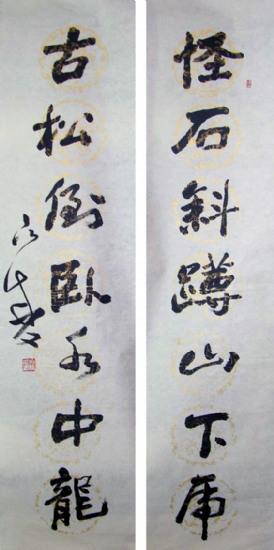 怪石斜蹲山下虎
古松倒卧水中龍